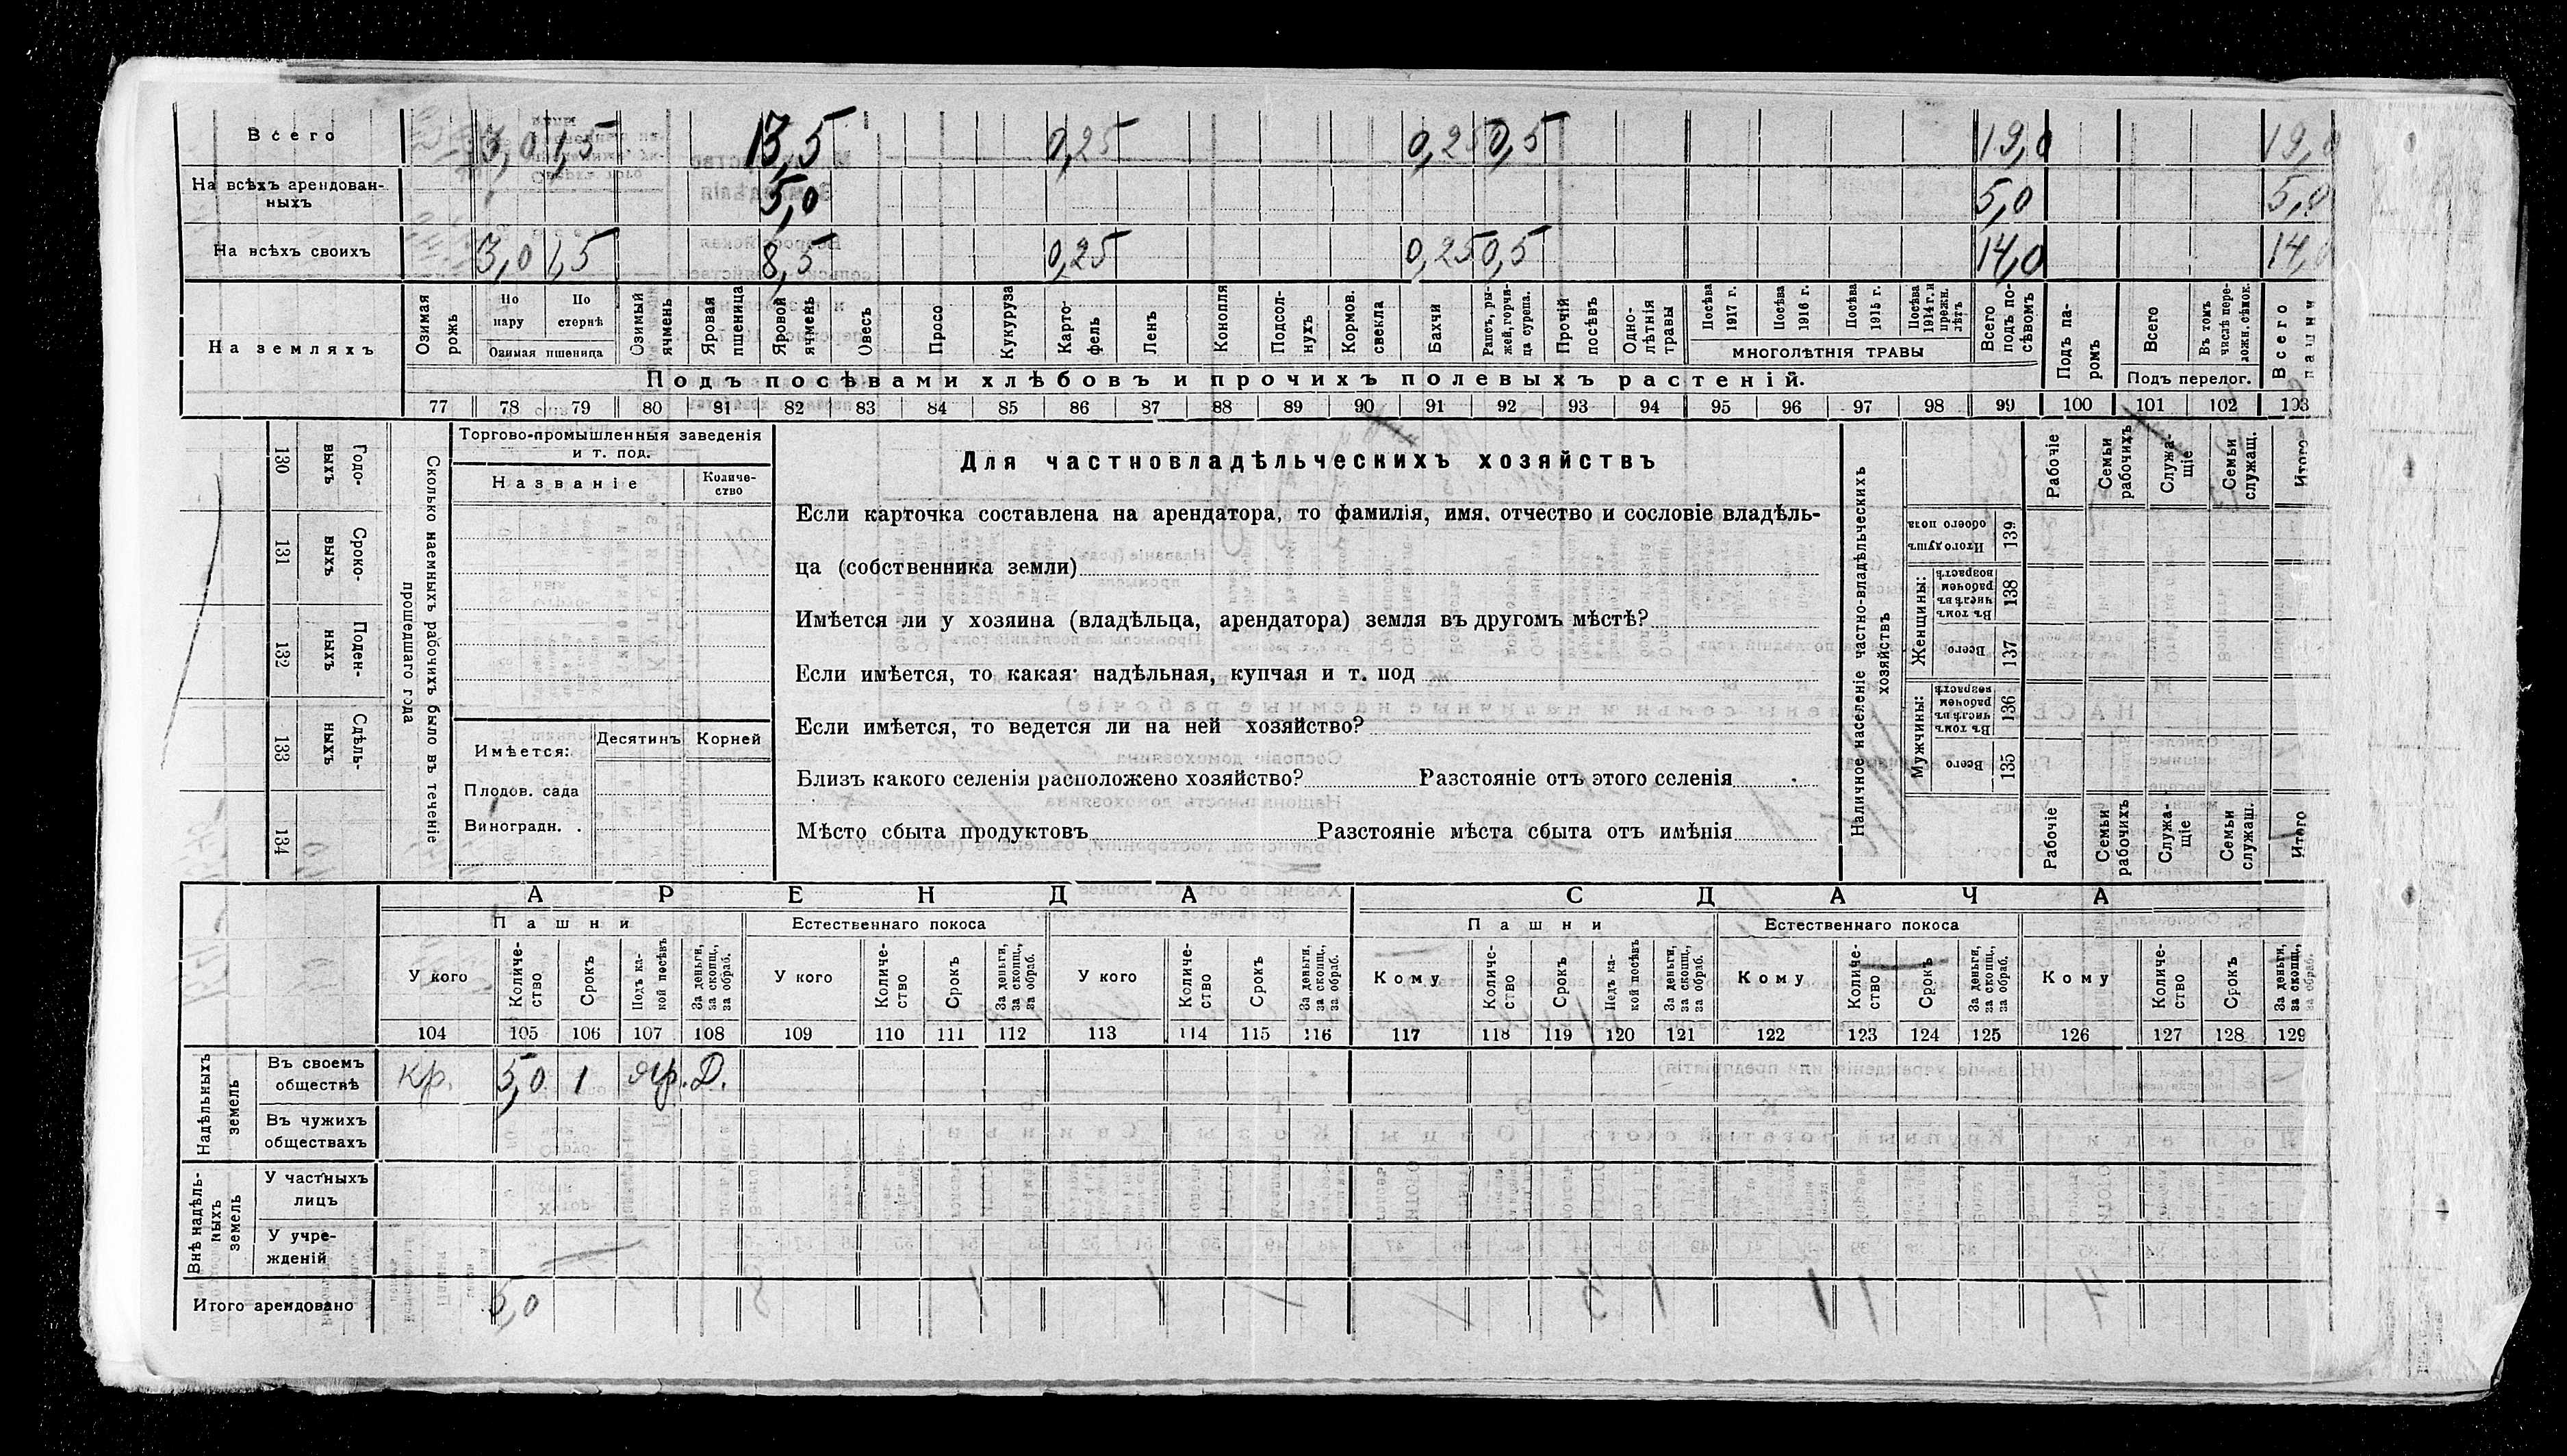 Всего 3,0 1,5 13,5 0,25 0,25 0,5 19,0 19,0
На всѣхъ арендован-
ныхъ 5,0 5,0 5,0
На всѣхъ своихъ 3,0 1,5 8,5 0,25 0,25 0,5 14,0 14,0
На земляхъ
Озимая рожь
По пару
По стернѣ
Озимая пшеница
Озимый ячмень
Яровая пшеница
Яровой ячмень
Овесъ
Просо
Кукуруза
Карто-
фель
Ленъ
Конопля
Подсол-
нухъ
Кормов. свекла
Бахчи
Рапсъ, ры-
жей, горчи-
ца суреца.
Прочій посѣвъ
Одно-
лѣтнія травы
Посѣва 1917 г.
Посѣва 1916 г.
Посѣва 1915 г.
Посѣва 1914 г. и прежн. лѣтъ
МНОГОЛѢТНІЯ ТРАВЫ
Всего подъ по-
сѣвомъ
Подъ па-
ромъ
Всего
Въ томъ числѣ пере-
ложн. сѣнок.
Подъ перелог.
Всего пашни
Подъ посѣвами хлѣбовъ и прочихъ полевыхъ растеній.
77 78 79 80 81 82 83 84 85 86 87 88 89 90 91 92 93 94 95 96 97 98 99 100 101 102 103
Сколько наемныхъ рабочихъ было въ теченіе
прошедшаго года
130 Годо-
выхъ
131 Сроко-
выхъ
132 Поден-
ныхъ
133 Сдѣль-
ныхъ
134
Торгово-промышленныя заведенія
и т. под.
Названіе
Количе-
ство
Имѣется: Десятинъ Корней
Плодов. сада
Виноградн. .
Для частновладѣльческихъ хозяйствъ
Если карточка составлена на арендатора, то фамилія, имя, отчество и сословіе владѣль-
ца (собственника земли)
Имѣется ли у хозяина (владѣльца, арендатора) земля въ другомъ мѣстѣ?
Если имѣется, то какая: надѣльная, купчая и т. под
Если имѣется, то ведется ли на ней хозяйство?
Близъ какого селенія расположено хозяйство? Разстояніе отъ этого селенія
Мѣсто сбыта продуктовъ Разстояніе мѣста сбыта отъ имѣнія
Наличное населеніе частно-владѣльческихъ
хозяйствъ
Рабочіе
Семьи рабочихъ
Служа-
щіе
Семьи служащ.
Итого
Итого душъ обоего пола 139
Женщины:
Въ томъ числѣ въ рабочемъ возрастѣ 138
Всего 137
Мужчины:
Въ томъ числѣ въ рабочемъ возрастѣ 136
Всего 135
Рабочіе
Семьи рабочихъ
Служа-
щіе
Семьи служащ.
Итого
АРЕНДА СДАЧА
Пашни Естественнаго покоса Пашни Естественнаго покоса
У кого
Количе-
ство
Срокъ
Подъ ка-
кой посѣвъ
За деньги, за скопщ., за обраб.
У кого
Количе-
ство
Срокъ
За деньги, за скопщ., за обраб.
У кого
Количе-
ство
Срокъ
За деньги, за скопщ., за обраб.
Кому
Количе-
ство
Срокъ
Подъ ка-
кой посѣвъ
За деньги, за скопщ., за обраб.
Кому
Количе-
ство
Срокъ
За деньги, за скопщ., за обраб.
Кому
Количе-
ство
Срокъ
За деньги, за скопщ., за обраб.
104 105 106 107 108 109 110 111 112 113 114 115 116 117 118 119 120 121 122 123 124 125 126 127 128 129
Надѣльныхъ земель
Въ своемъ
обществѣ кр. 5,0 1 яр. Д.
Въ чужихъ
обществахъ
Внѣ надѣль-
ныхъ земель
У частныхъ
лицъ
У учре-
жденій
Итого арендовано 5,0